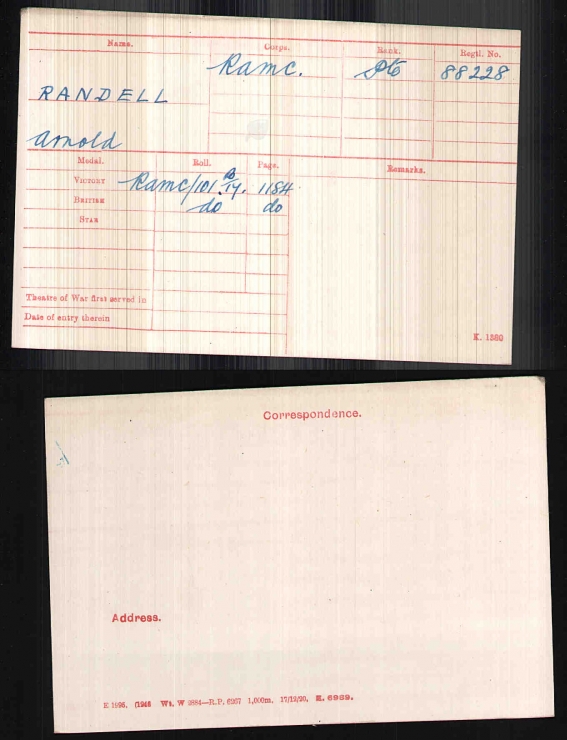 Name. Corps. Rank. Regtl. No.
Ramc. Pte 88228
RANDELL
Arnold
Medal. Roll. Page. Remarks.
VICTORY Ramc/101 B 17. 1184
BRITISH do do
STAR
Theatre of War first served in
Date of entry therein
K. 1380
Correspondence.
Address.
E 1996. (1246 Wt. W 3884—R.P. 6267 1,000m. 17/12/20. K. 6989.